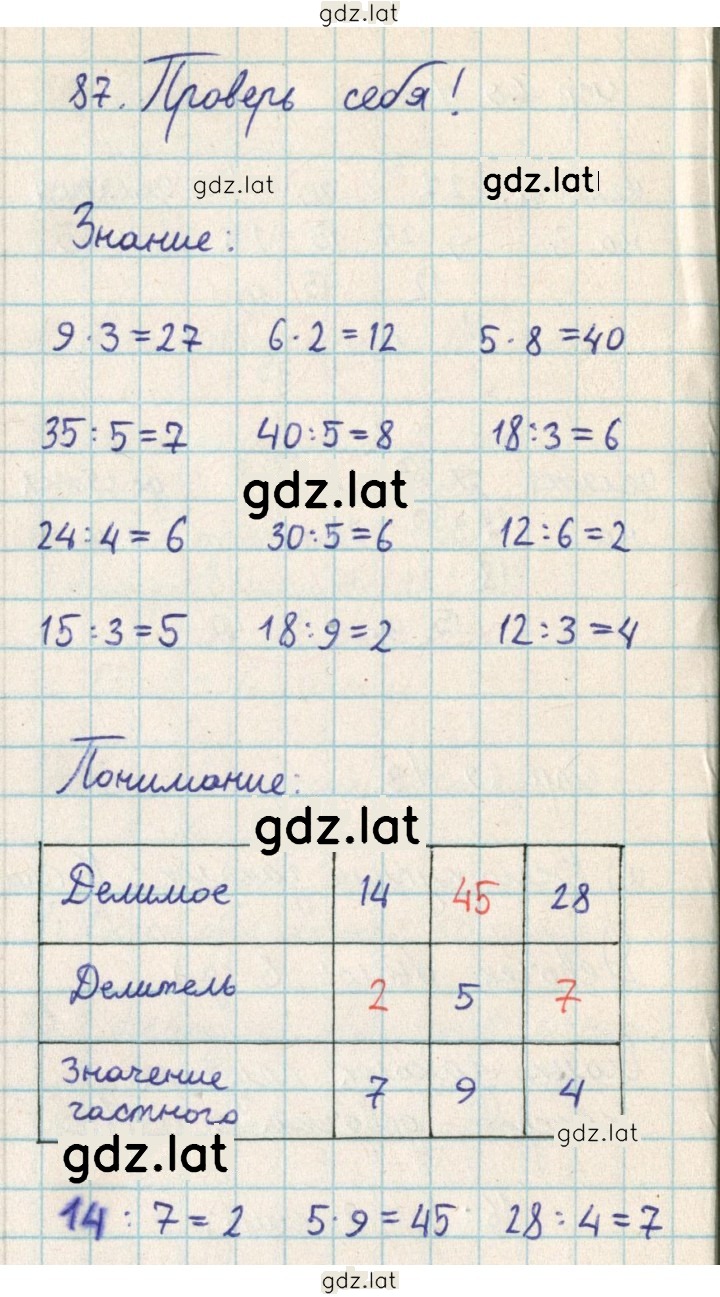 gdz.lat
87. Проверь себя!
gdz.lat gdz.lat
Знание:
9·3=27 6·2=12 5·8=40
35:5=7 40:5=8 18:3=6
gdz.lat
24:4=6 30:5=6 12:6=2
15:3=5 18:9=2 12:3=4
Понимание:
gdz.lat
Делимое 14 45 28
Делитель 2 5 7
Значение
частного 7 9 4
gdz.lat
gdz.lat
14:7=2 5·9=45 28:4=7
gdz.lat